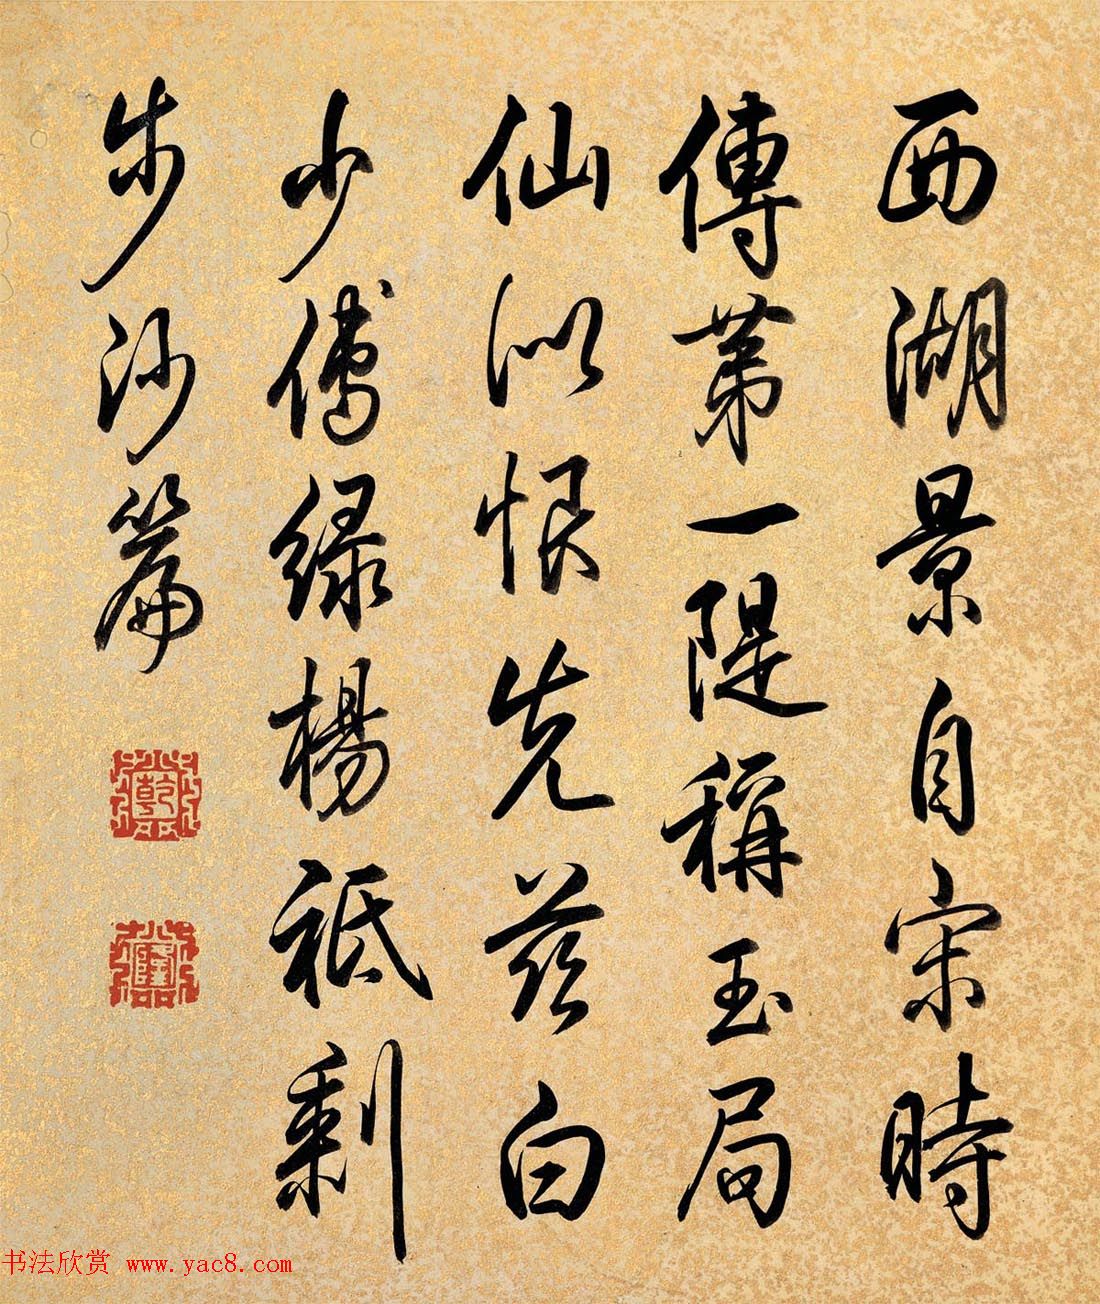 西湖景自宋時
傳第一隄稱玉局
仙似恨先茲白
少傅绿楊祗剩
步沙篇
乾
隆
书法欣赏 www.yac8.com